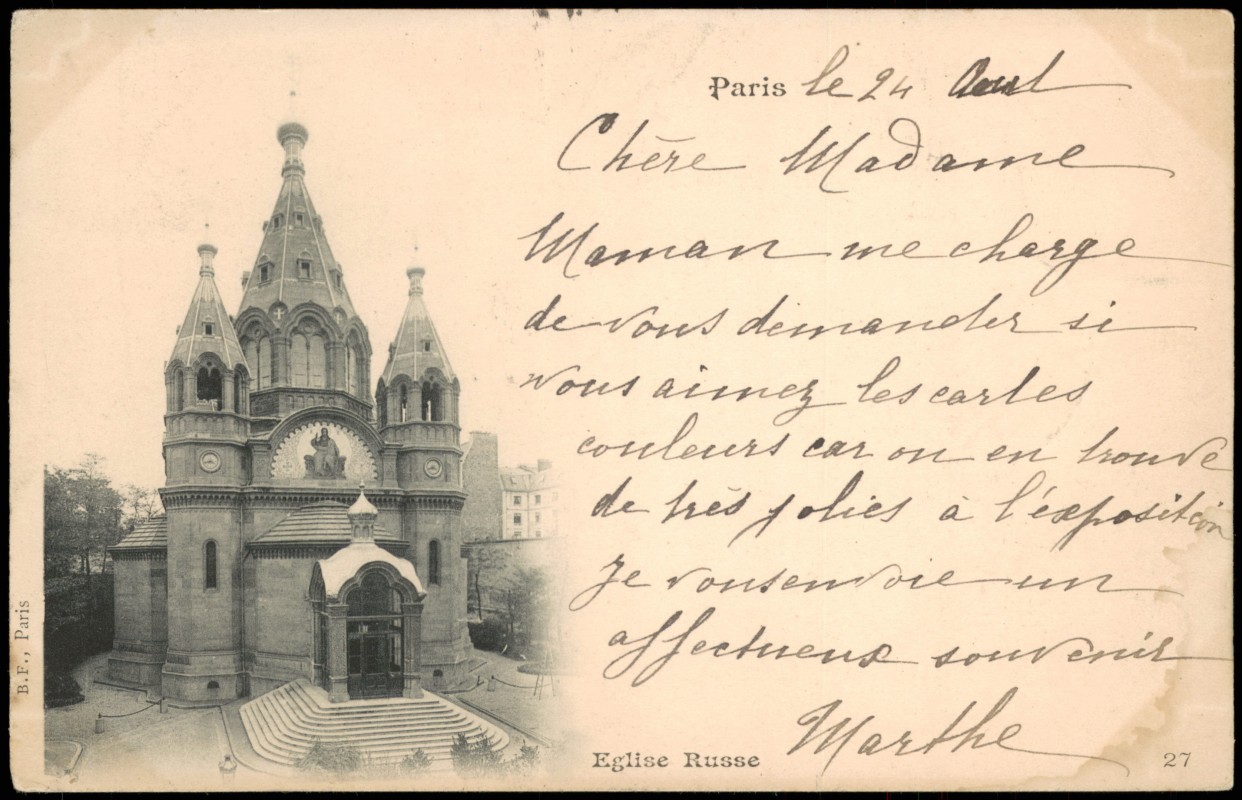 Paris le 24
Chère Madame
Maman me charge
de vous demander si
vous aimez les cartes
couleurs car on en trouve
de très jolies à l'éxposition
Je vous envoie un
affectueux souvenir
Marthe
Eglise Russe
27
B.F., Paris